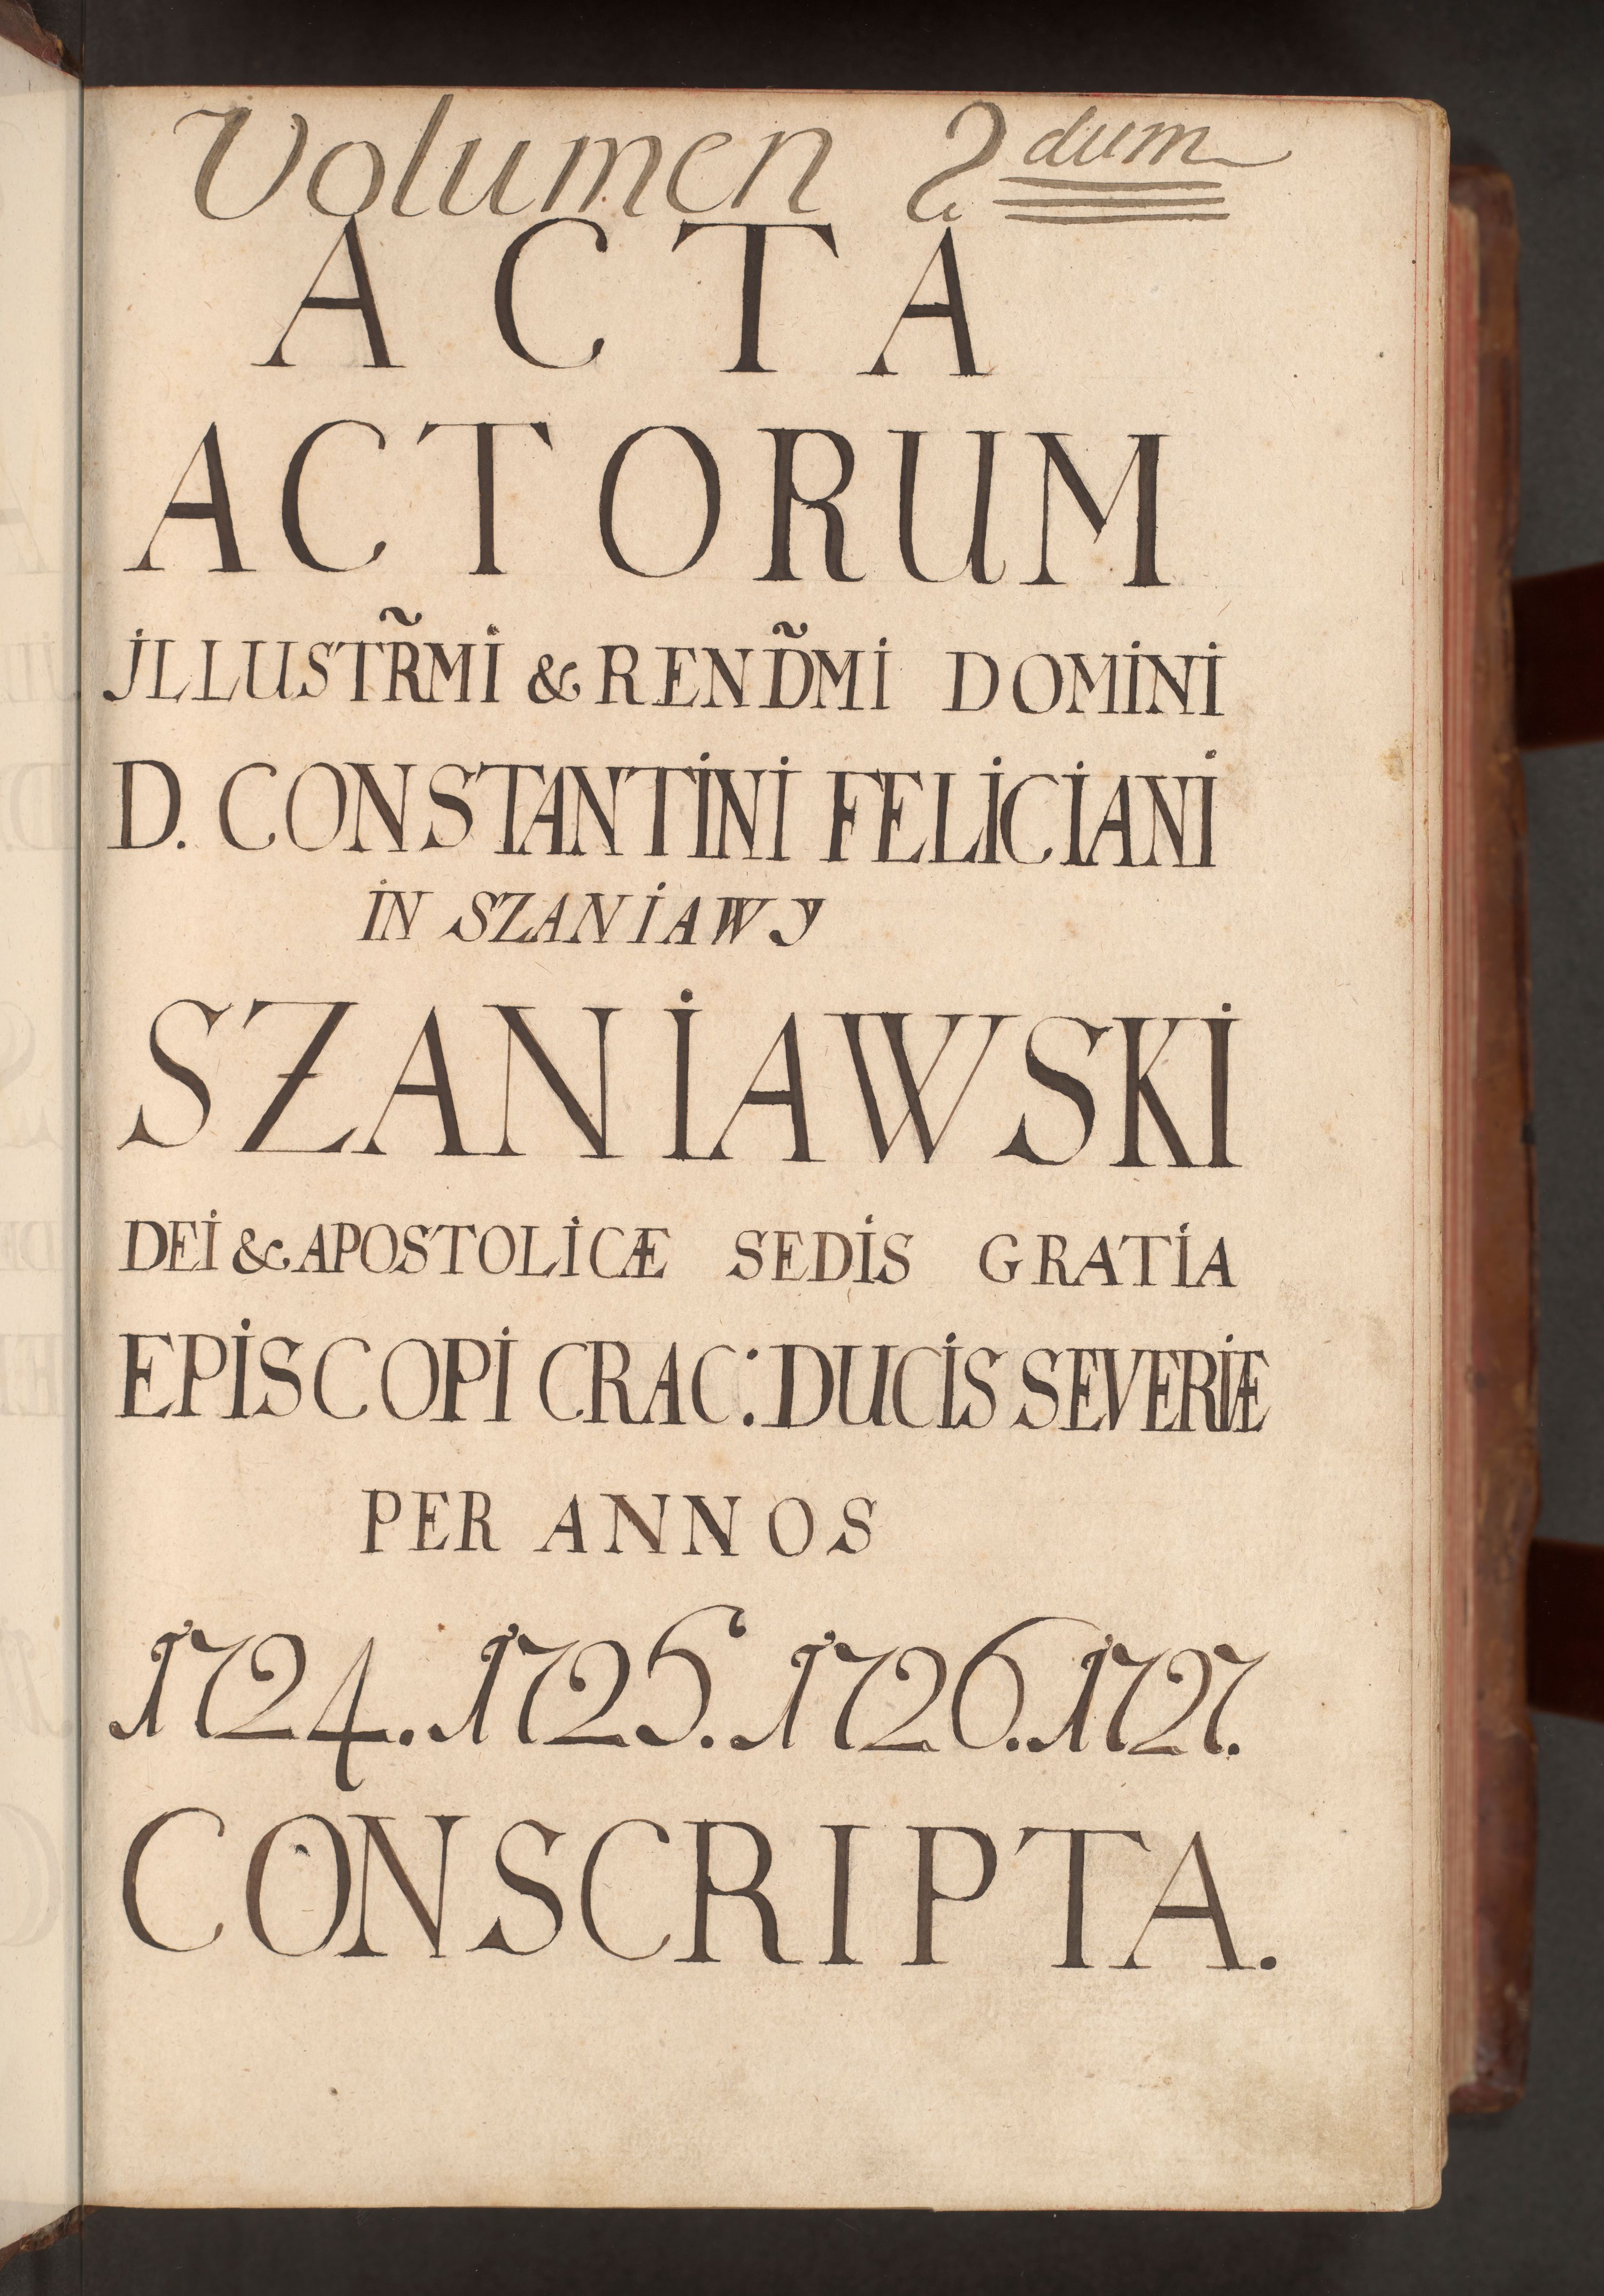 Volumen 2dum
ACTA
ACTORUM
JLLUSTR̃MI & REND̃MI DOMINI
D. CONSTANTINI FELICIANI
IN SZANIAWY
SZANIAWSKI
DEI & APOSTOLICÆ SEDIS GRATIA
EPISCOPI CRAC: DUCIS SEVERIÆ
PER ANNOS
1724. 1725. 1726. 1727.
CONSCRIPTA.